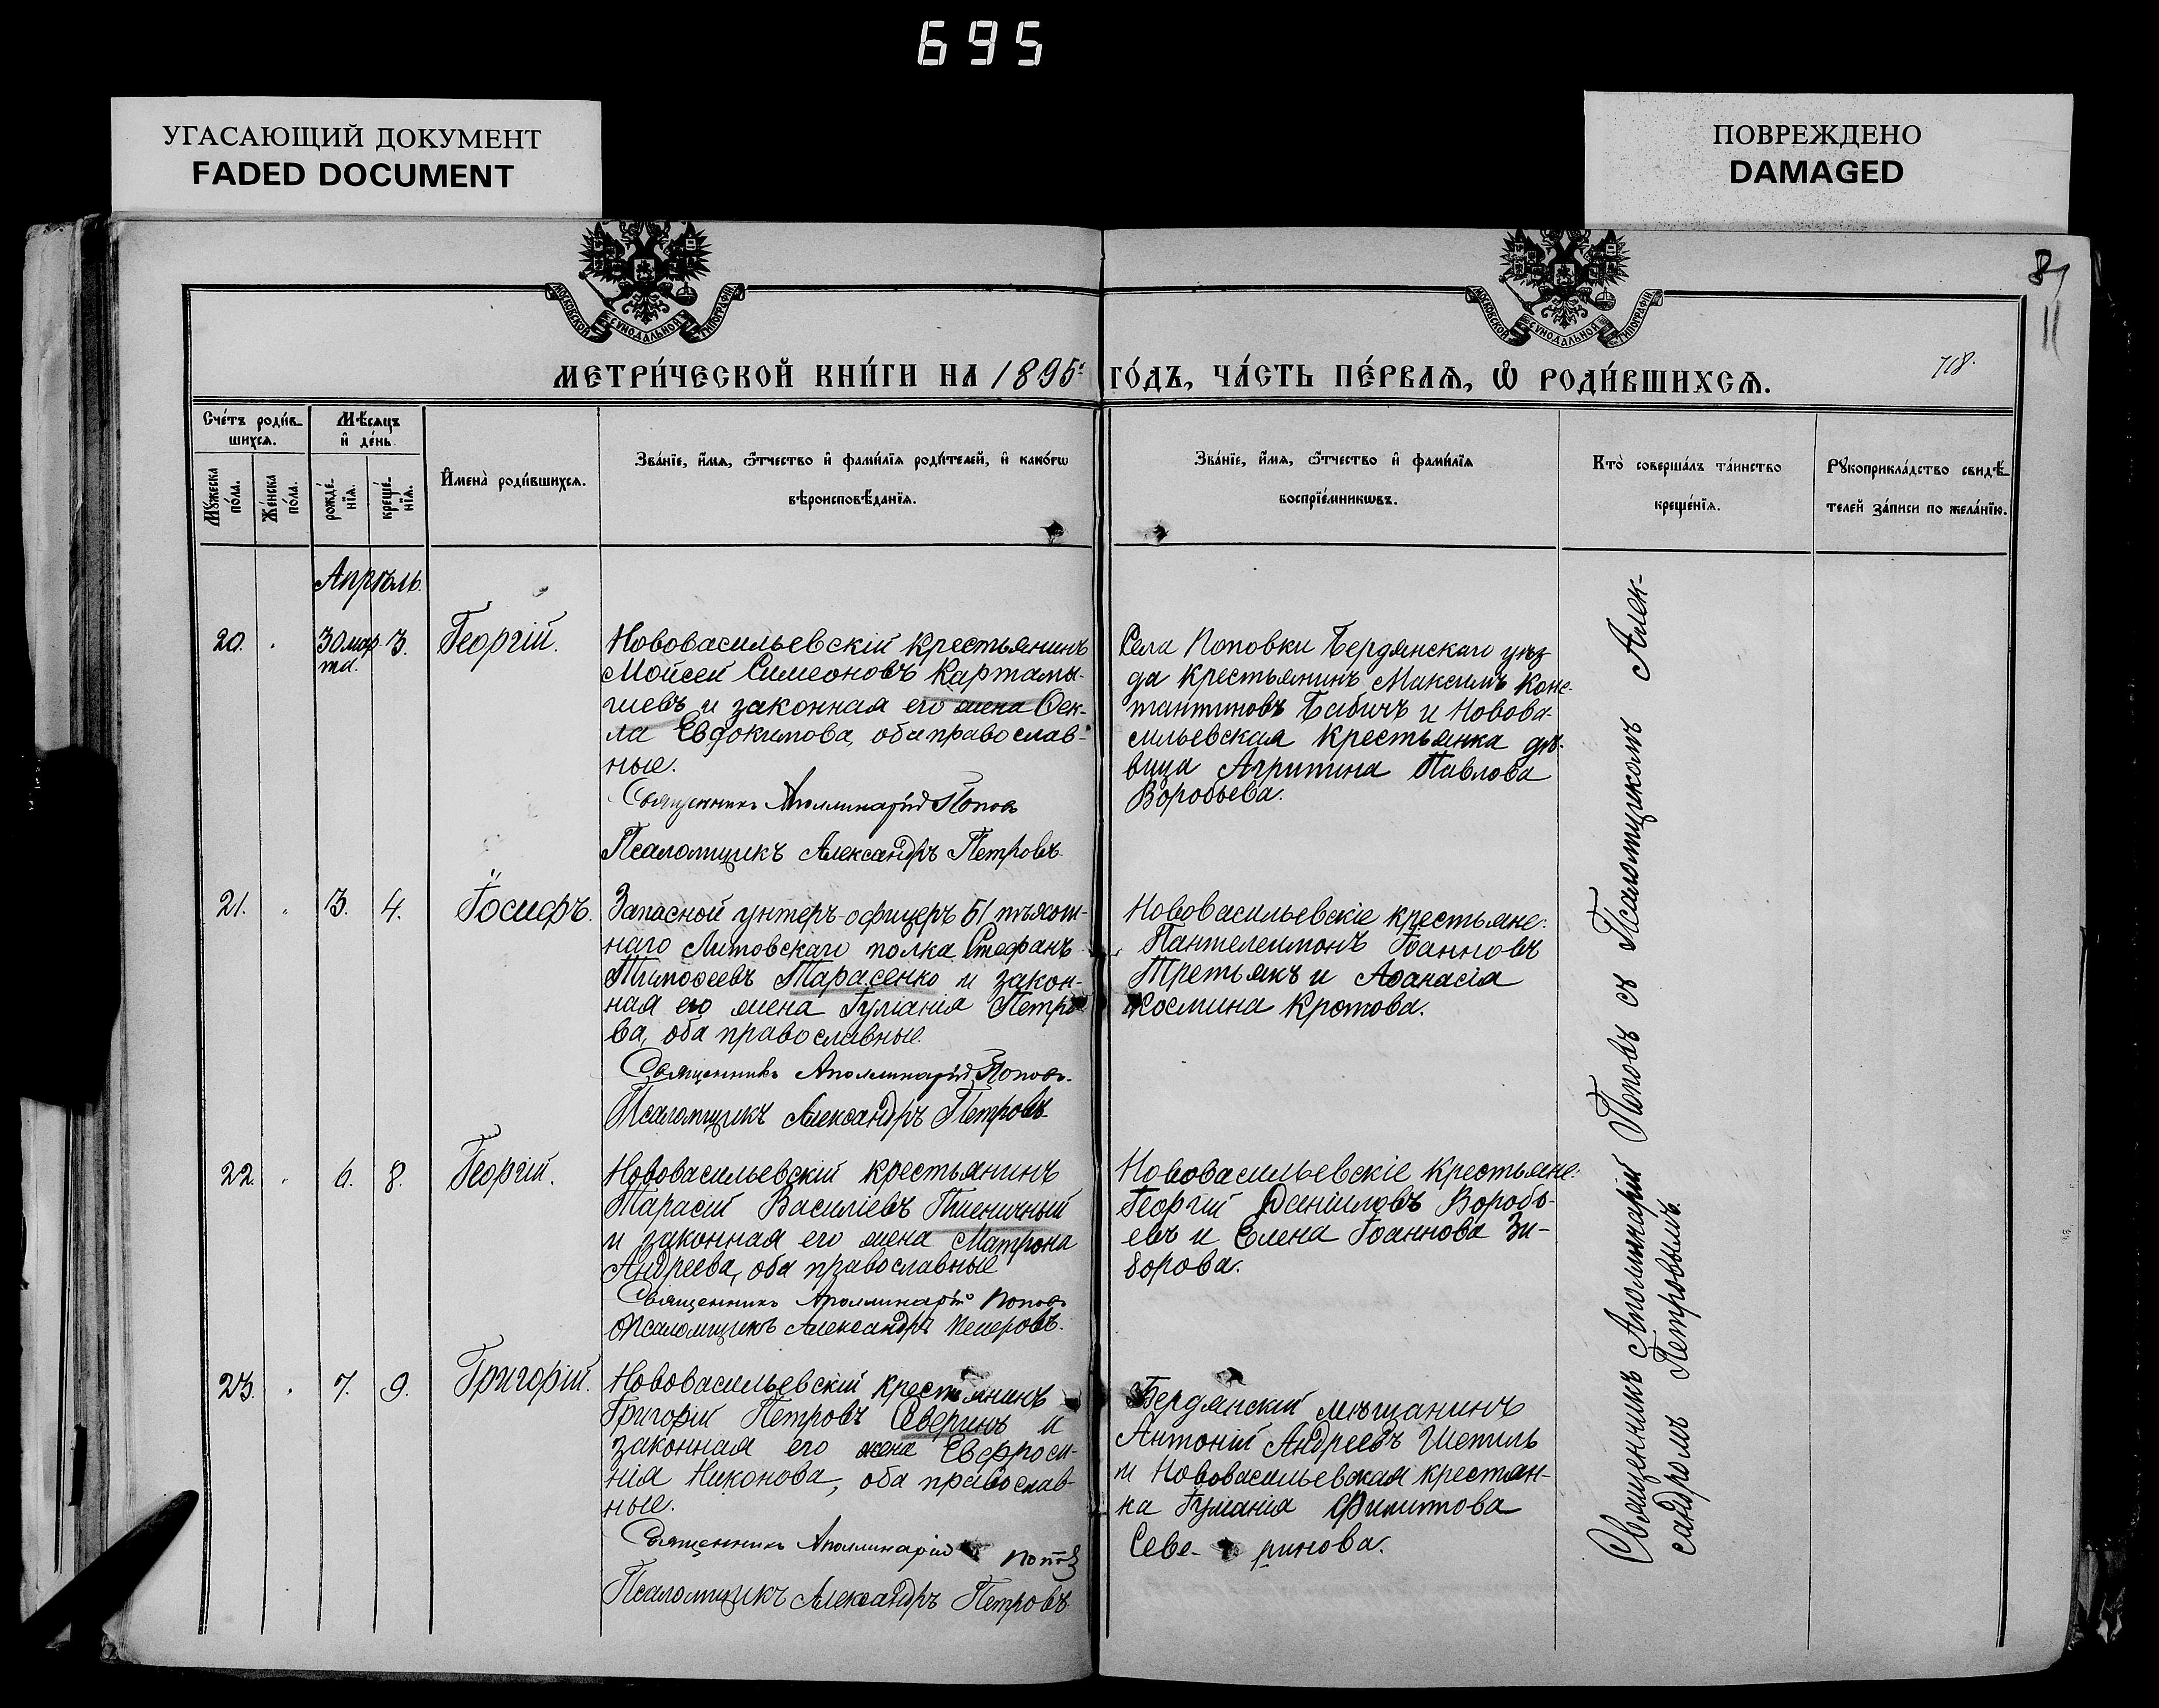 695
УГАСАЮЩИЙ ДОКУМЕНТ
FADED DOCUMENT
ПОВРЕЖДЕНО
DAMAGED
МОСКОВСКОЙ СѴНОДАЛЬНОЙ ТИПОГРАФІИ
МОСКОВСКОЙ СѴНОДАЛЬНОЙ ТИПОГРАФІИ
718.
МЕТРИ́ЧЕСКОЙ КНИ́ГИ НА 1895й ГО́ДЪ, ЧА́СТЬ ПЕ́РВАѦ, Ѡ҆ РОДИ́ВШИХСѦ.
Сче́тъ роди́в-
шихсѧ.
Мꙋ́жеска
по́ла.
Же́нска
по́ла.
Мѣ́сѧцъ
и҆ де́нь
рожде́-
нїѧ.
креще́-
нїѧ.
И҆мена̀ роди́вшихсѧ.
Зва́нїе, и҆́мѧ, ѻ҆́тчество и҆ фами́лїѧ роди́телей, и҆ како́гѡ
вѣроисповѣ́данїѧ.
Зва́нїе, и҆́мѧ, ѻ҆́тчество и҆ фами́лїѧ
воспрїе́мникѡвъ.
Кто̀ соверша́лъ та́инство
креще́нїѧ.
Рꙋкоприкла́дство свидѣ́-
телей за́писи по жела́нїю.
Апрѣль.
20.
30 мар
та.
3.
Георгій.
Нововасильевскій крестьянинъ
Мойсей Симеоновъ Картамы-
шевъ и законная его жена Ѳек-
ла Евдокимова, оба православ-
ные.
Священникъ Аполлинарій Попов
Псаломщикъ Александръ Петровъ
Села Поповки Бердянскаго уѣз-
да крестьянинъ Максимъ Конс-
тантиновъ Бабичъ и Новова-
сильевская крестьянка дѣ-
вица Агрипина Павлова
Воробьева.
21.
3.
4.
Іосифъ.
Запасной унтеръ-офицеръ 51 пѣхот-
наго Литовскаго полка Стефанъ
Тимоѳеевъ Тарасенко и закон-
ная его жена Іуліанія Петро
ва, оба православные.
Священникъ Аполлинарій Поповъ.
Псаломщикъ Александръ Петровъ
Нововасильевскіе крестьяне:
Пантелеимонъ Іоанновъ
Третьякъ и Аѳанасія
Космина Кротова.
22.
6.
8.
Георгій.
Нововасильевскій крестьянинъ
Тарасій Василіевъ Пшеничный
и законная его жена Матрона
Андреева, оба православные
Священникъ Аполлинарій Поповъ
Псаломщикъ Александръ Петровъ.
Нововасильевскіе крестьяне:
Георгій Даніиловъ Воробь-
евъ и Елена Іоаннова Зи-
борова.
23.
7.
9.
Григорій.
Нововасильевскій крестьянинъ
Григорій Петровъ Северинъ и
законная его жена Евфроси-
нія Никонова, оба православ-
ные.
Священникъ Аполлинарій Поповъ
Псаломщикъ Александръ Петровъ
Бердянскій мѣщанинъ
Антоній Андреевъ Шепиль
и Нововасильевская крестьян-
ка Іуліанія Филиппова
Севе- ринова.
Священникъ Аполлинарій Поповъ съ Псаломщикомъ Алек-
сандромъ Петровымъ.